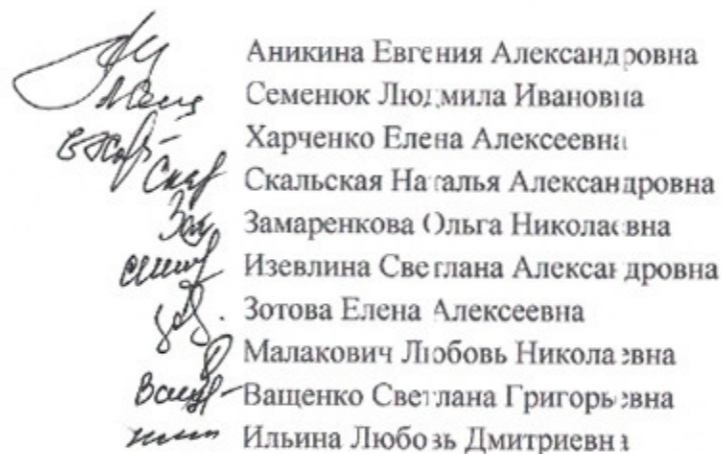 Аникина Евгения Александровна
Семенюк Людмила Ивановна
Харченко Елена Алексеевна
Скальская Наталья Александровна
Замаренкова Ольга Николаевна
Изевлина Светлана Александровна
Зотова Елена Алексеевна
Малакович Любовь Николаевна
Ващенко Светлана Григорьевна
Ильина Любовь Дмитриевна